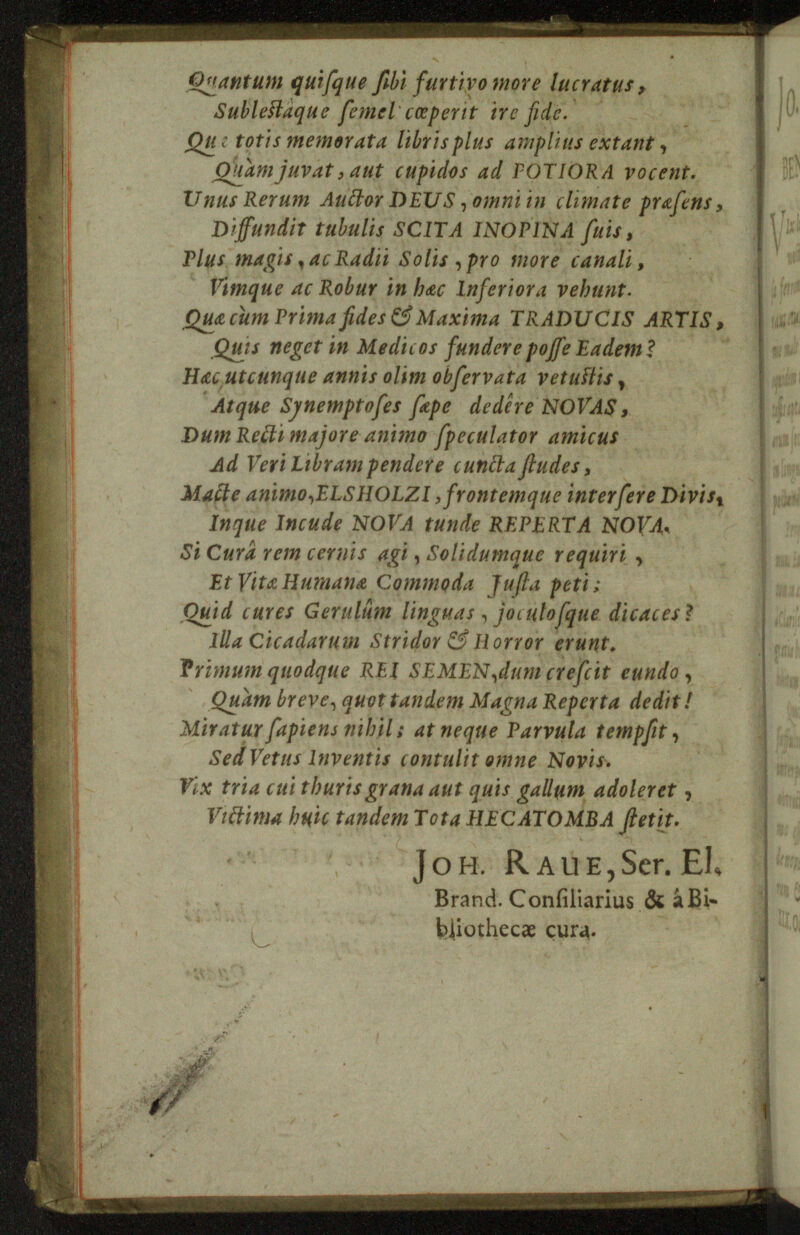 Quantum quiſque ſibi furtivo more lucratus,
Subleſtáque ſemel cœperit ire fide.
Quæ totis memorata libris plus amplius extant,
Quàm juvat, aut cupidos ad POTIORA vocent.
Unus Rerum Auctor DEUS, omni in climate præſens,
Diffundit tubulis SCITA INOPINA ſuis,
Plus magis, ac Radii Solis, pro more canali,
Vimque ac Robur in hæc Inferiora vehunt.
Quæ cùm Prima fides & Maxima TRADUCIS ARTIS,
Quis neget in Medicos fundere poſſe Eadem?
Hæc utcunque annis olim obſervata vetuſtis,
Atque Synemptoſes ſæpe dedêre NOVAS,
Dum Recti majore animo ſpeculator amicus
Ad Veri Libram pendere cuncta ſtudes,
Macte animo, ELSHOLZI, frontemque interſere Divis,
Inque Incude NOVA tunde REPERTA NOVA.
Si Curâ rem cernis agi, Solidumque requiri,
Et Vitæ Humanæ Commoda Juſta peti;
Quid cures Gerulûm linguas, joculoſque dicaces?
Illa Cicadarum Stridor & Horror erunt.
Primum quodque REI SEMEN, dum creſcit eundo,
Quàm breve, quot tandem Magna Reperta dedit!
Miratur ſapiens nihil; at neque Parvula tempſit,
Sed Vetus Inventis contulit omne Novis.
Vix tria cui thuris grana aut quis gallum adoleret,
Victima huic tandem Tota HECATOMBA ſtetit.
JOH. RAUE, Ser. El.
Brand. Conſiliarius & à Bi-
bliothecæ cura.